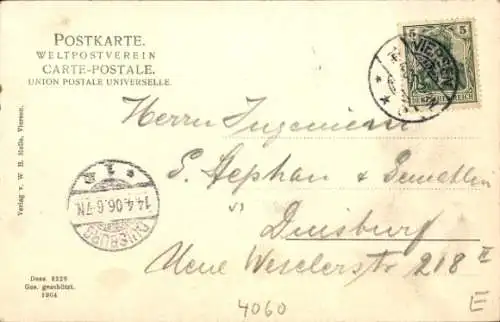 POSTKARTE.
WELTPOSTVEREIN
CARTE-POSTALE.
UNION POSTALE UNIVERSELLE.
5 5
VIERSEN
DEUTSCHES REICH
Herrn Ingenieur
S. Stephan &
Duisburg
Neue Weselerstr 218 II
* 1 g
14.4.06.6-7N
DUISBURG
Verlag v. W. H. Molls, Viersen.
Dess. 8228
Ges. geschützt.
1904
4060
E